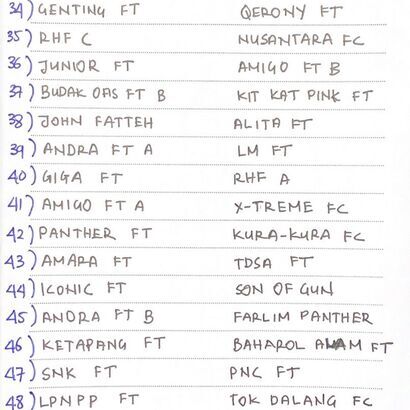 34) GENTING FT QERONY FT
35) RHF C NUSANTARA FC
36) JUNIOR FT AMIGO FT B
37) BUDAK OAS FT B KIT KAT PINK FT
38) JOHN FATTEH ALITA FT
39) ANDRA FT A LM FT
40) GIGA FT RHF A
41) AMIGO FT A X-TREME FC
42) PANTHER FT KURA-KURA FC
43) AMARA FT TDSA FT
44) ICONIC FT SON OF GUN
45) ANDRA FT B FARLIM PANTHER
46) KETAPANG FT BAHAROL ALAM FT
47) SNK FT PNC FT
48) LPNPP FT TOK DALANG FC